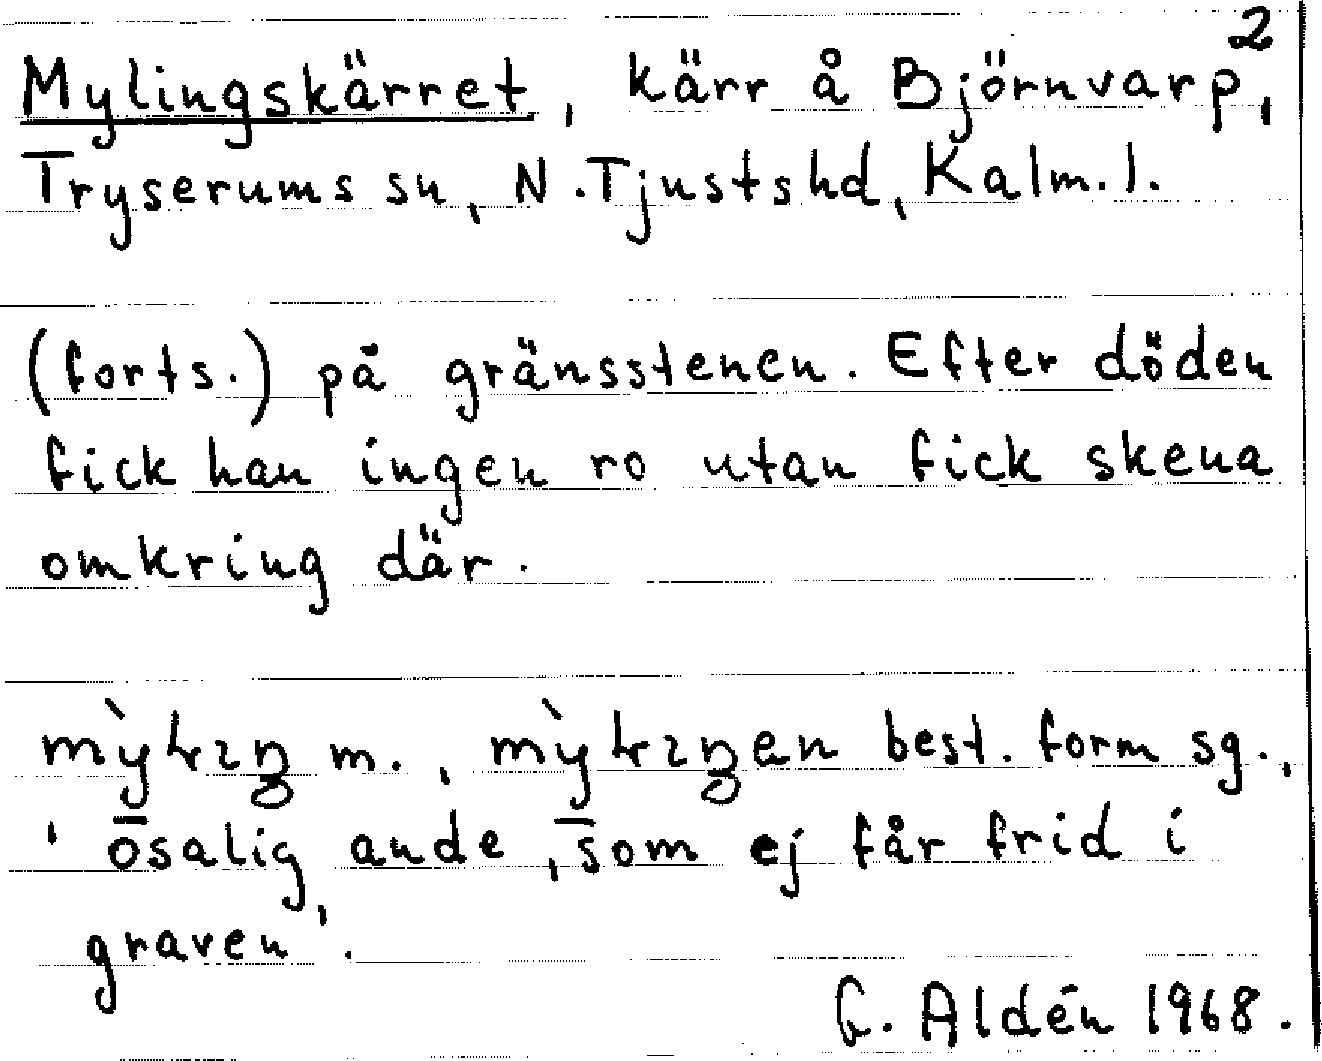 2
Mylingskärret, kärr å Björnvarp,
Tryserums sn, N. Tjustshd, Kalm. l.
(forts.) på gränsstenen. Efter döden
fick han ingen ro utan fick skena
omkring där.
m. , best. form sg.,
'osalig ande, som ej får frid i
graven'.
G. Aldén 1968.